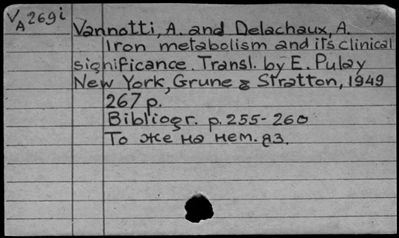 VA269i
Vannotti, A. and Delachaux, A.
Iron metabolism and its clinical
significance. Transl. by E. Pulay
New York, Grune & Stratton, 1949
267 p.
Bibliogr. p. 255-260
То же на нем. яз.